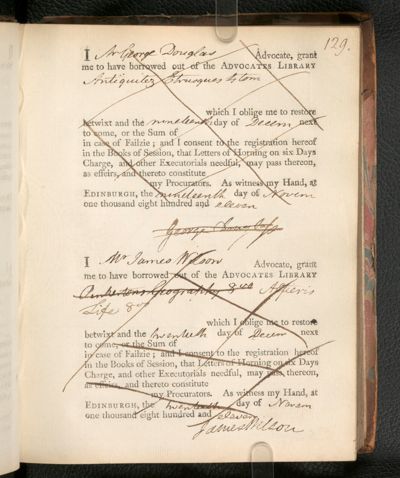 129.
I Mr George Douglas Advocate, grant
me to have borrowed out of the ADVOCATES LIBRARY
Antiquitez Etrusques 4 tom
which I oblige me to restore
betwixt and the nineteenth day of Decem next
to come, or the Sum of
in case of Failzie; and I consent to the registration hereof
in the Books of Session, that Letters of Horning on six Days
Charge, and other Executorials needful, may pass thereon,
as effeirs, and thereto constitute
my Procurators. As witness my Hand, at
EDINBURGH, the nineteenth day of Novem
one thousand eight hundred and eleven
George Douglas
I Mr James Wilson Advocate, grant
me to have borrowed out of the ADVOCATES LIBRARY
Pinkertons Geography
Life 8vo
which I oblige me to restore
betwixt and the twentieth day of Decem next
to come, or the Sum of
in case of Failzie; and I consent to the registration hereof
in the Books of Session, that Letters of Horning on six Days
Charge, and other Executorials needful, may pass, thereon,
as effeirs, and thereto constitute
my Procurators. As witness my Hand, at
EDINBURGH, the twentieth day of Novem
one thousand eight hundred and eleven
James Wilson